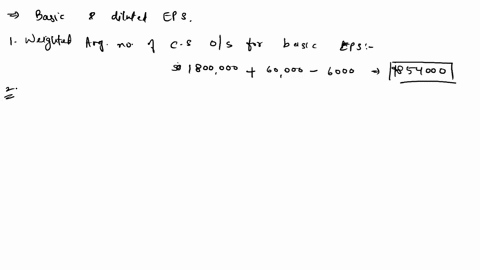 ⇒ Basic & diluted EPS.
1. Weighted Avg. no. of C.S o/s for basic EPS:-
⇒ 1800,000 + 60,000 - 6000 → 1854000
2.